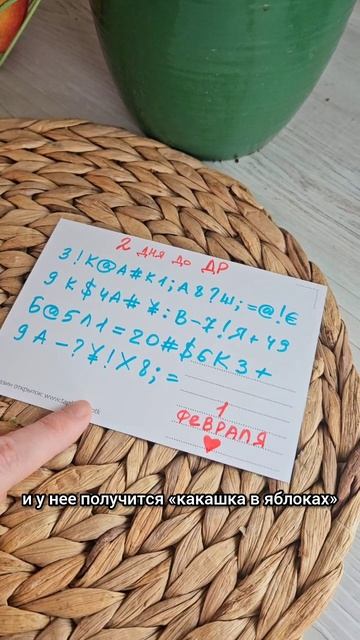 2 дня до ДР
3!К@А#К1;А8?Ш;=@!Є
9К$4А#¥:В-7!Я+49
Б@5Л1=20#$6К3+
9А-?¥!Х8;=
1
ФЕВРАЛЯ
и у нее получится «какашка в яблоках»